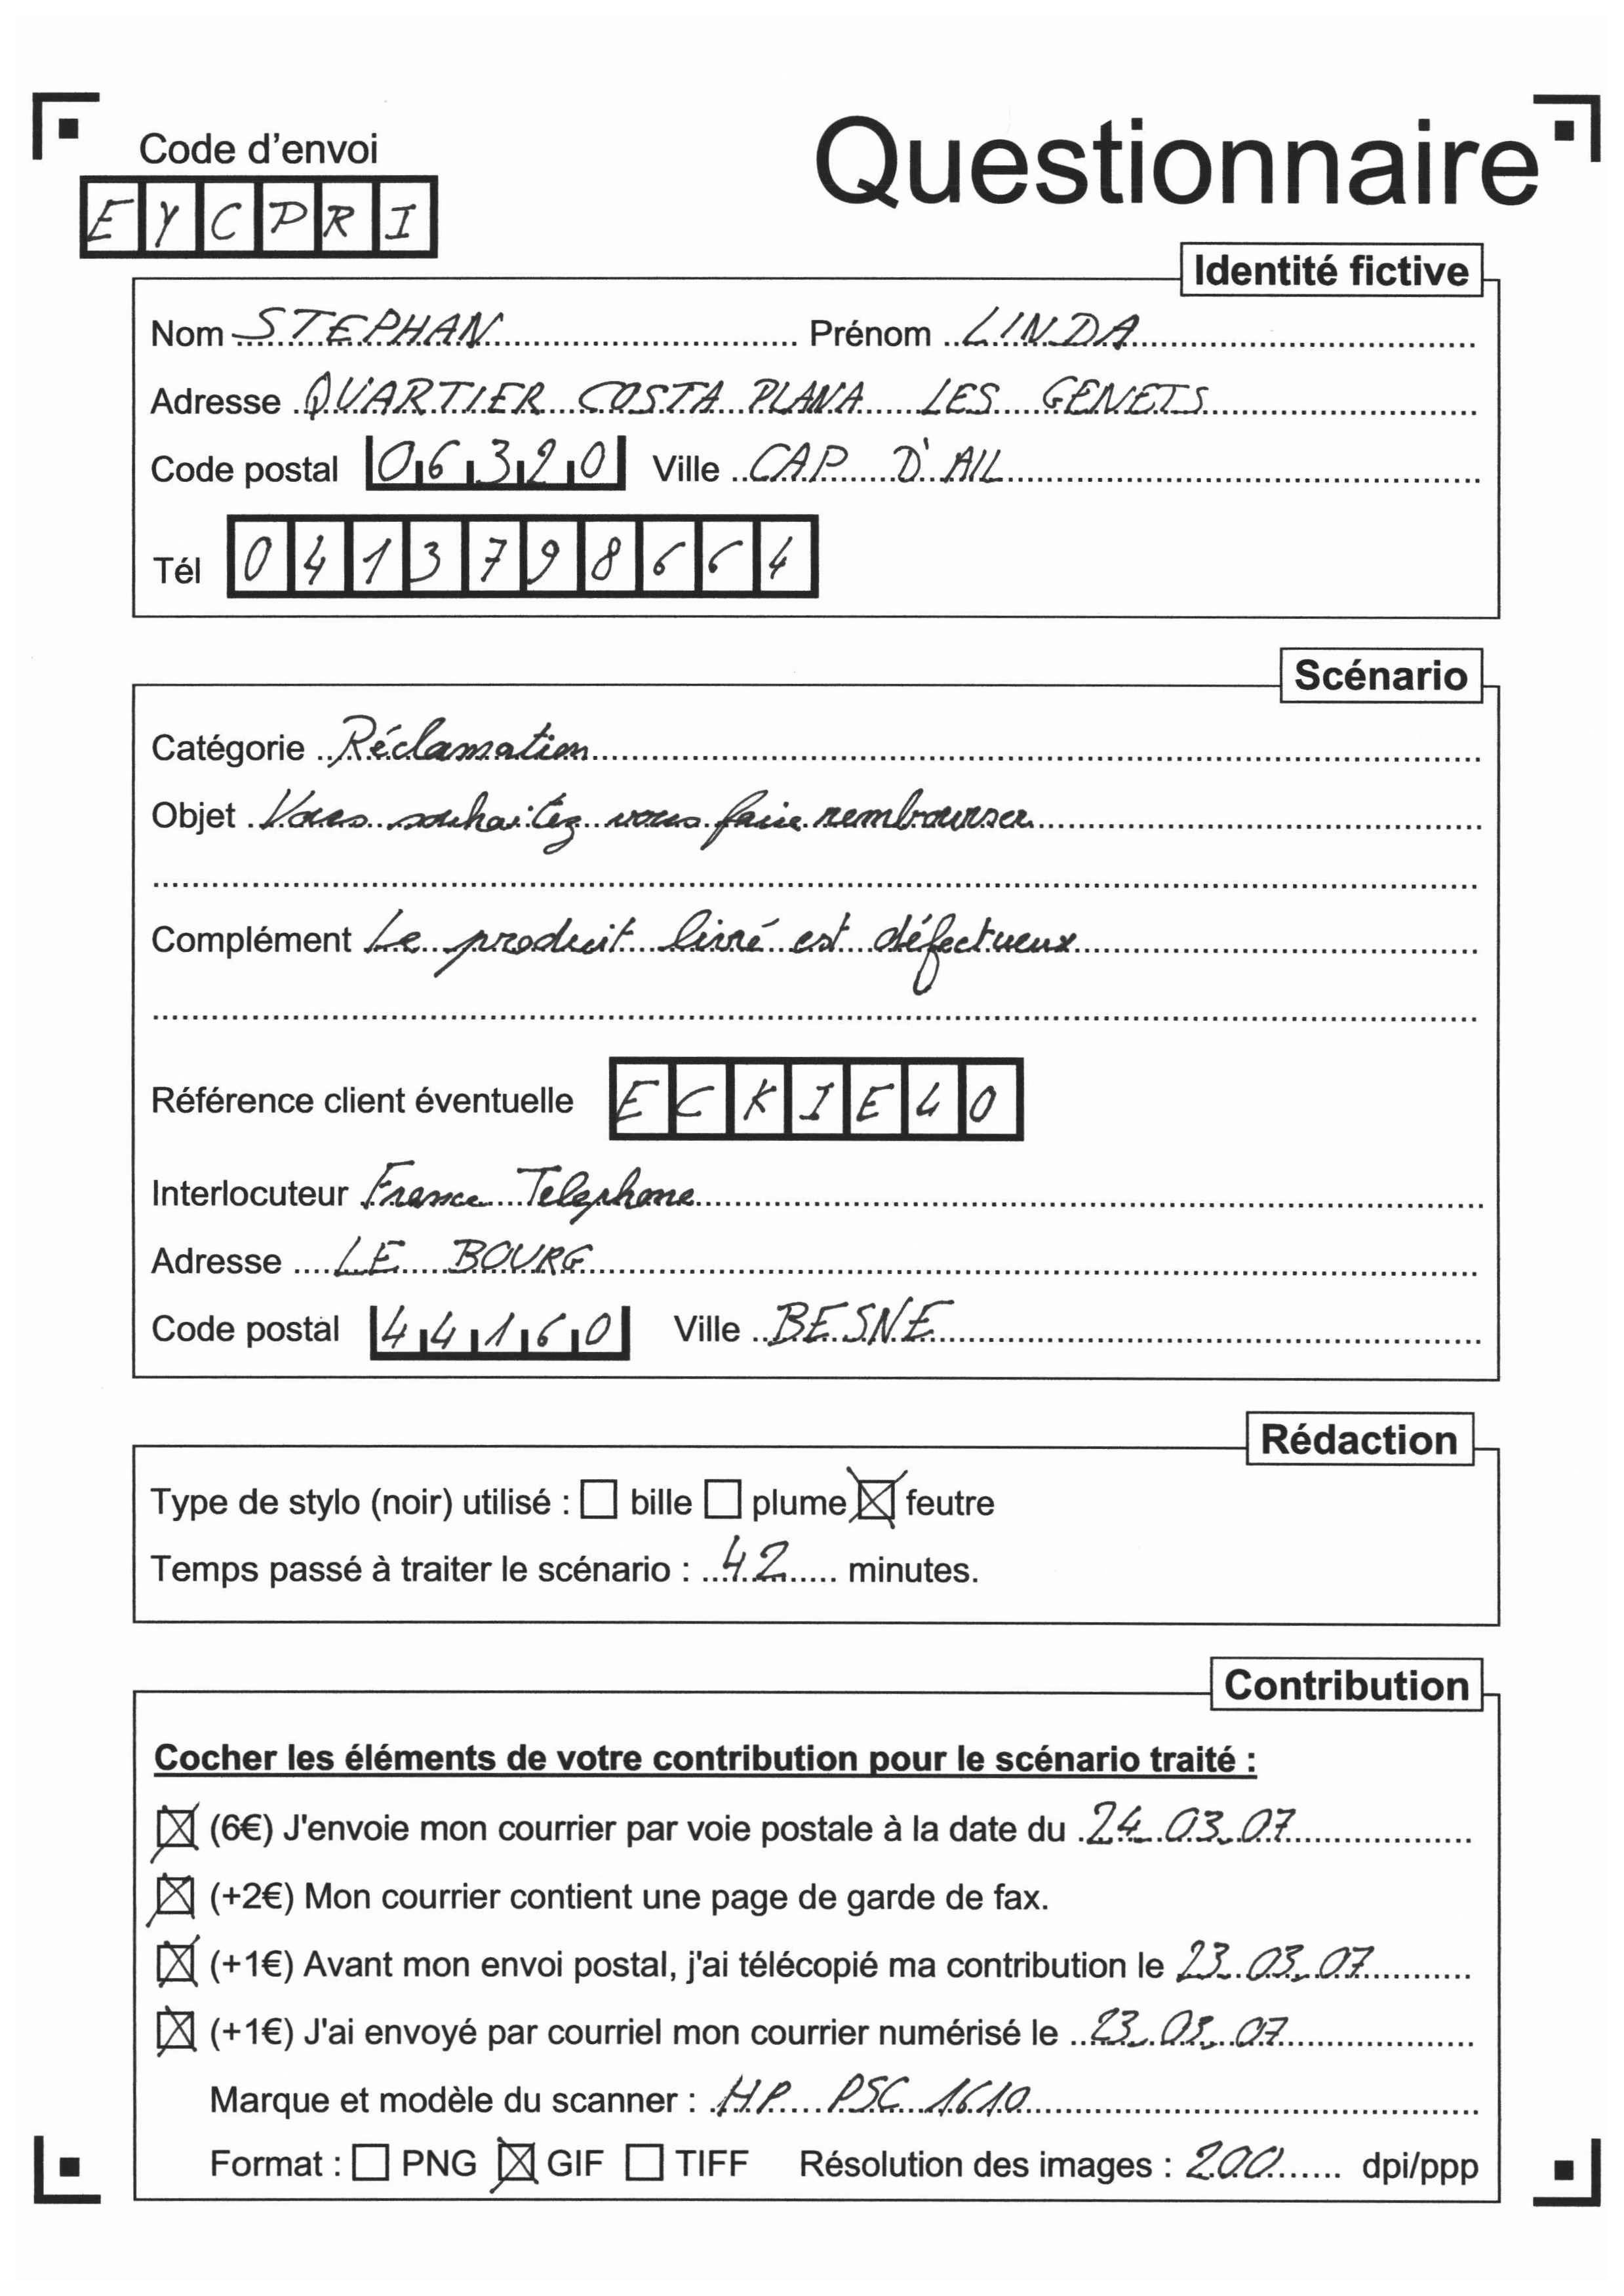 Code d'envoi
Questionnaire
EYCPRI
Identité fictive
Nom STEPHAN Prénom LINDA
Adresse QUARTIER COSTA PLANA LES GENETS
Code postal 06320 Ville CAP D'AIL
Tél 0413798664
Scénario
Catégorie Réclamation
Objet Vous souhaitez vous faire rembourser
Complément Le produit livré est défectueux
Référence client éventuelle ECKIE40
Interlocuteur France Telephone
Adresse LE BOURG
Code postal 44160 Ville BESNE
Rédaction
Type de stylo (noir) utilisé : ☐ bille ☐ plume ☒ feutre
Temps passé à traiter le scénario : 42 minutes.
Contribution
Cocher les éléments de votre contribution pour le scénario traité :
☒ (6€) J'envoie mon courrier par voie postale à la date du 24.03.07
☒ (+2€) Mon courrier contient une page de garde de fax.
☒ (+1€) Avant mon envoi postal, j'ai télécopié ma contribution le 23.03.07
☒ (+1€) J'ai envoyé par courriel mon courrier numérisé le 23.03.07
Marque et modèle du scanner : HP PSC 1610
Format : ☐ PNG ☒ GIF ☐ TIFF Résolution des images : 200 dpi/ppp